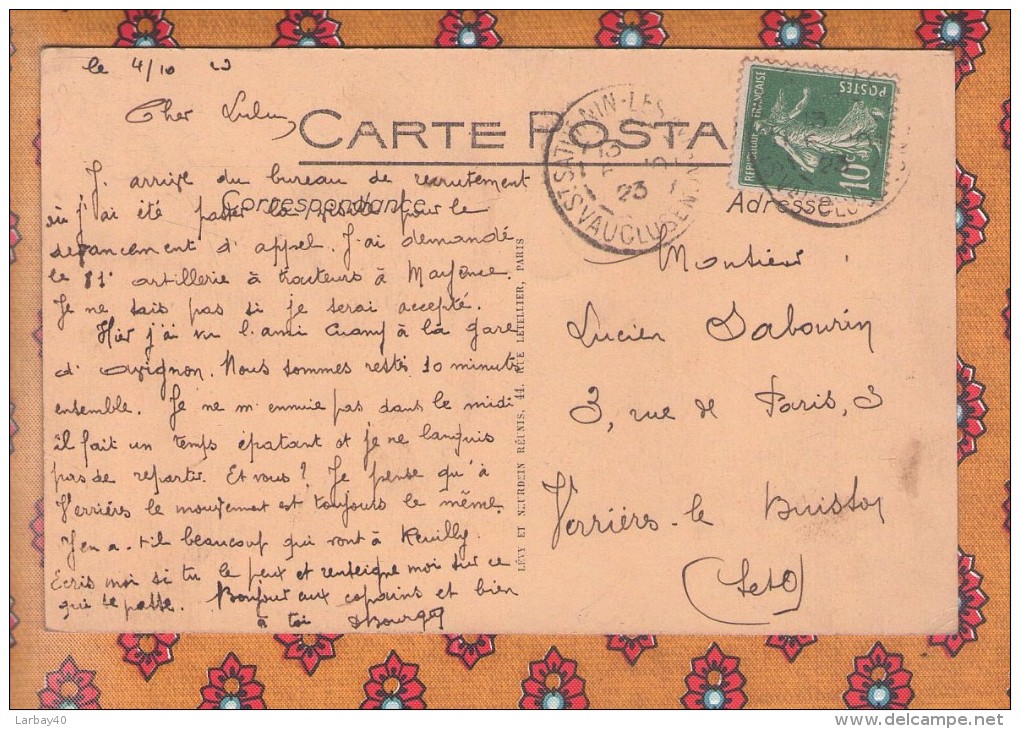 le 4/10 23
Cher Lulu,
CARTE POSTA
Correspondance
Adresse
J. arrive du bureau de recrutement
où j'ai été passer la visite pour le
devancement d'appel. J'ai demandé
le 81e artillerie à tracteurs à Mayence.
Je ne sais pas si je serai accepté.
Hier j'ai vu l'ami à la gare
d'Avignon. Nous sommes restés 10 minutes
ensemble. Je ne m'ennuie pas dans le midi
il fait un temps épatant et je ne languis
pas de repartir. Et vous? Je pense qu'à
Verrières le mouvement est toujours le même.
Y en a-t-il beaucoup qui vont à Reuilly.
Ecris moi si tu le peux et renseigne moi sur ce
qui se passe. Bonjour aux copains et bien
à toi
LÉVY ET NEURDEIN RÉUNIS, 44, RUE LETELLIER, PARIS
ST SATURNIN-LES-AVIGNON
VAUCLUSE
23
REPUBLIQUE FRANÇAISE
POSTES
10c
Monsieur
Lucien Sabourin
3, rue de Paris, 3
Verrières-le Buisson
(S et O)
Larbay40
www.delcampe.net